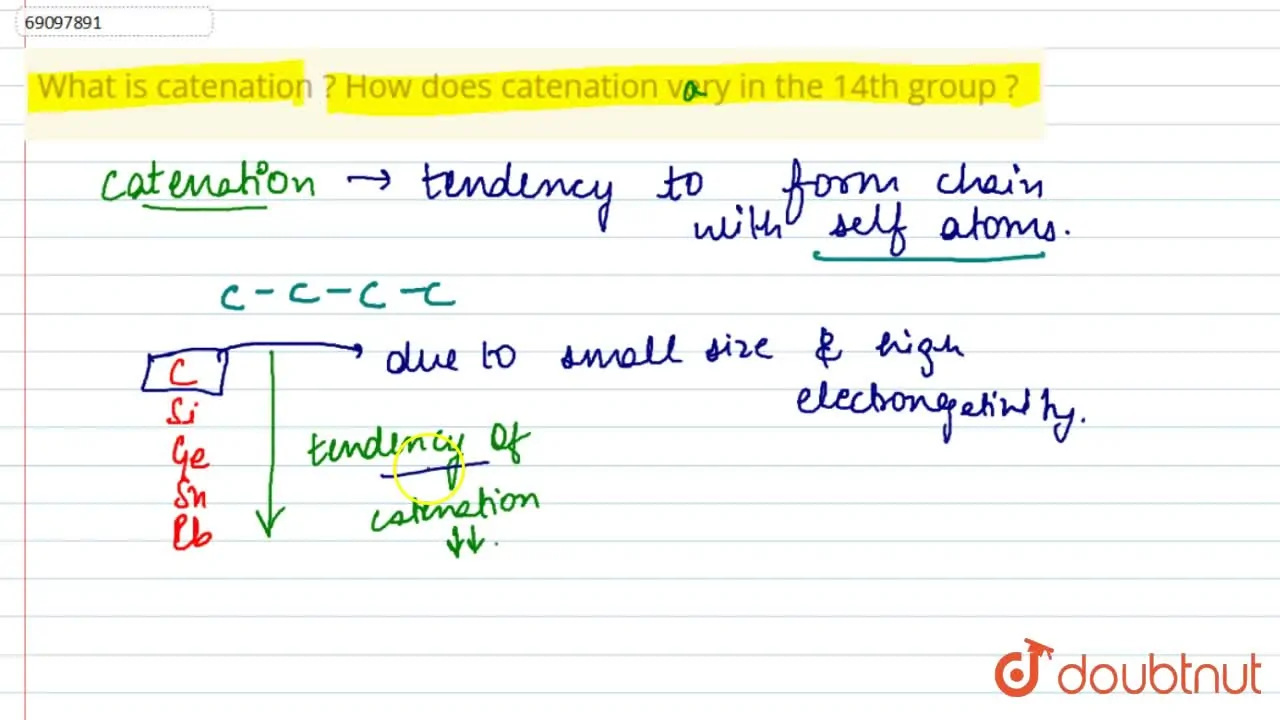 69097891
What is catenation ? How does catenation vary in the 14th group ?
catenation → tendency to form chain
with self atoms.
C - C - C - C
C → due to small size & high
electronegativity.
Si
Ge
Sn
Pb
tendency of
catenation
↓↓.
doubtnut